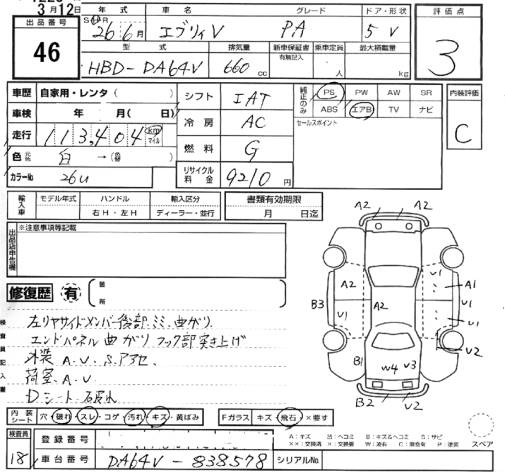 3月12日
年式 車名 グレード ドア・形状 評価点
出品番号 26年6月 エブリィV PA 5V 3
46
型式 排気量 新車保証書 乗車定員 最大積載量
有無記入
HBD-DA64V 660cc 人 kg
車歴 自家用・レンタ( ) シフト IAT 純正のみ PS PW AW SR 内装評価
車検 年 月( 日) ABS エアB TV ナビ C
冷房 AC セールスポイント
走行 113,404 km マイル
燃料 G
色 元色 白 →(色替 )
リサイクル料金 9210円
カラーNo 26U
輸入車 モデル年式 ハンドル 輸入区分 書類有効期限
右H・左H ディーラー・並行 月 日迄
出品店申告欄 ※注意事項等記載
修復歴 有 箇所
検査員記入欄
左リヤサイドメンバー後部ミミ曲がり
エンドパネル曲がり フック部突き上げ
外装 A.U.
荷室 A.U
Dシート
A2 A2
A2 A2 U1 A1
B3 U1 U1
B1 W4 U3 U2
B2 U2
内装シート 穴・破れ・スレ・コゲ・汚れ・キズ・黄ばみ Fガラス キズ・飛石・×要す
検査員 登録番号 A:キズ U:ヘコミ B:キズ&ヘコミ S:サビ
××:交換済 ×:交換要 W:波有 C:腐食有 P:塗装 スペア
18 車台番号 DA64V-838578 シリアルNo